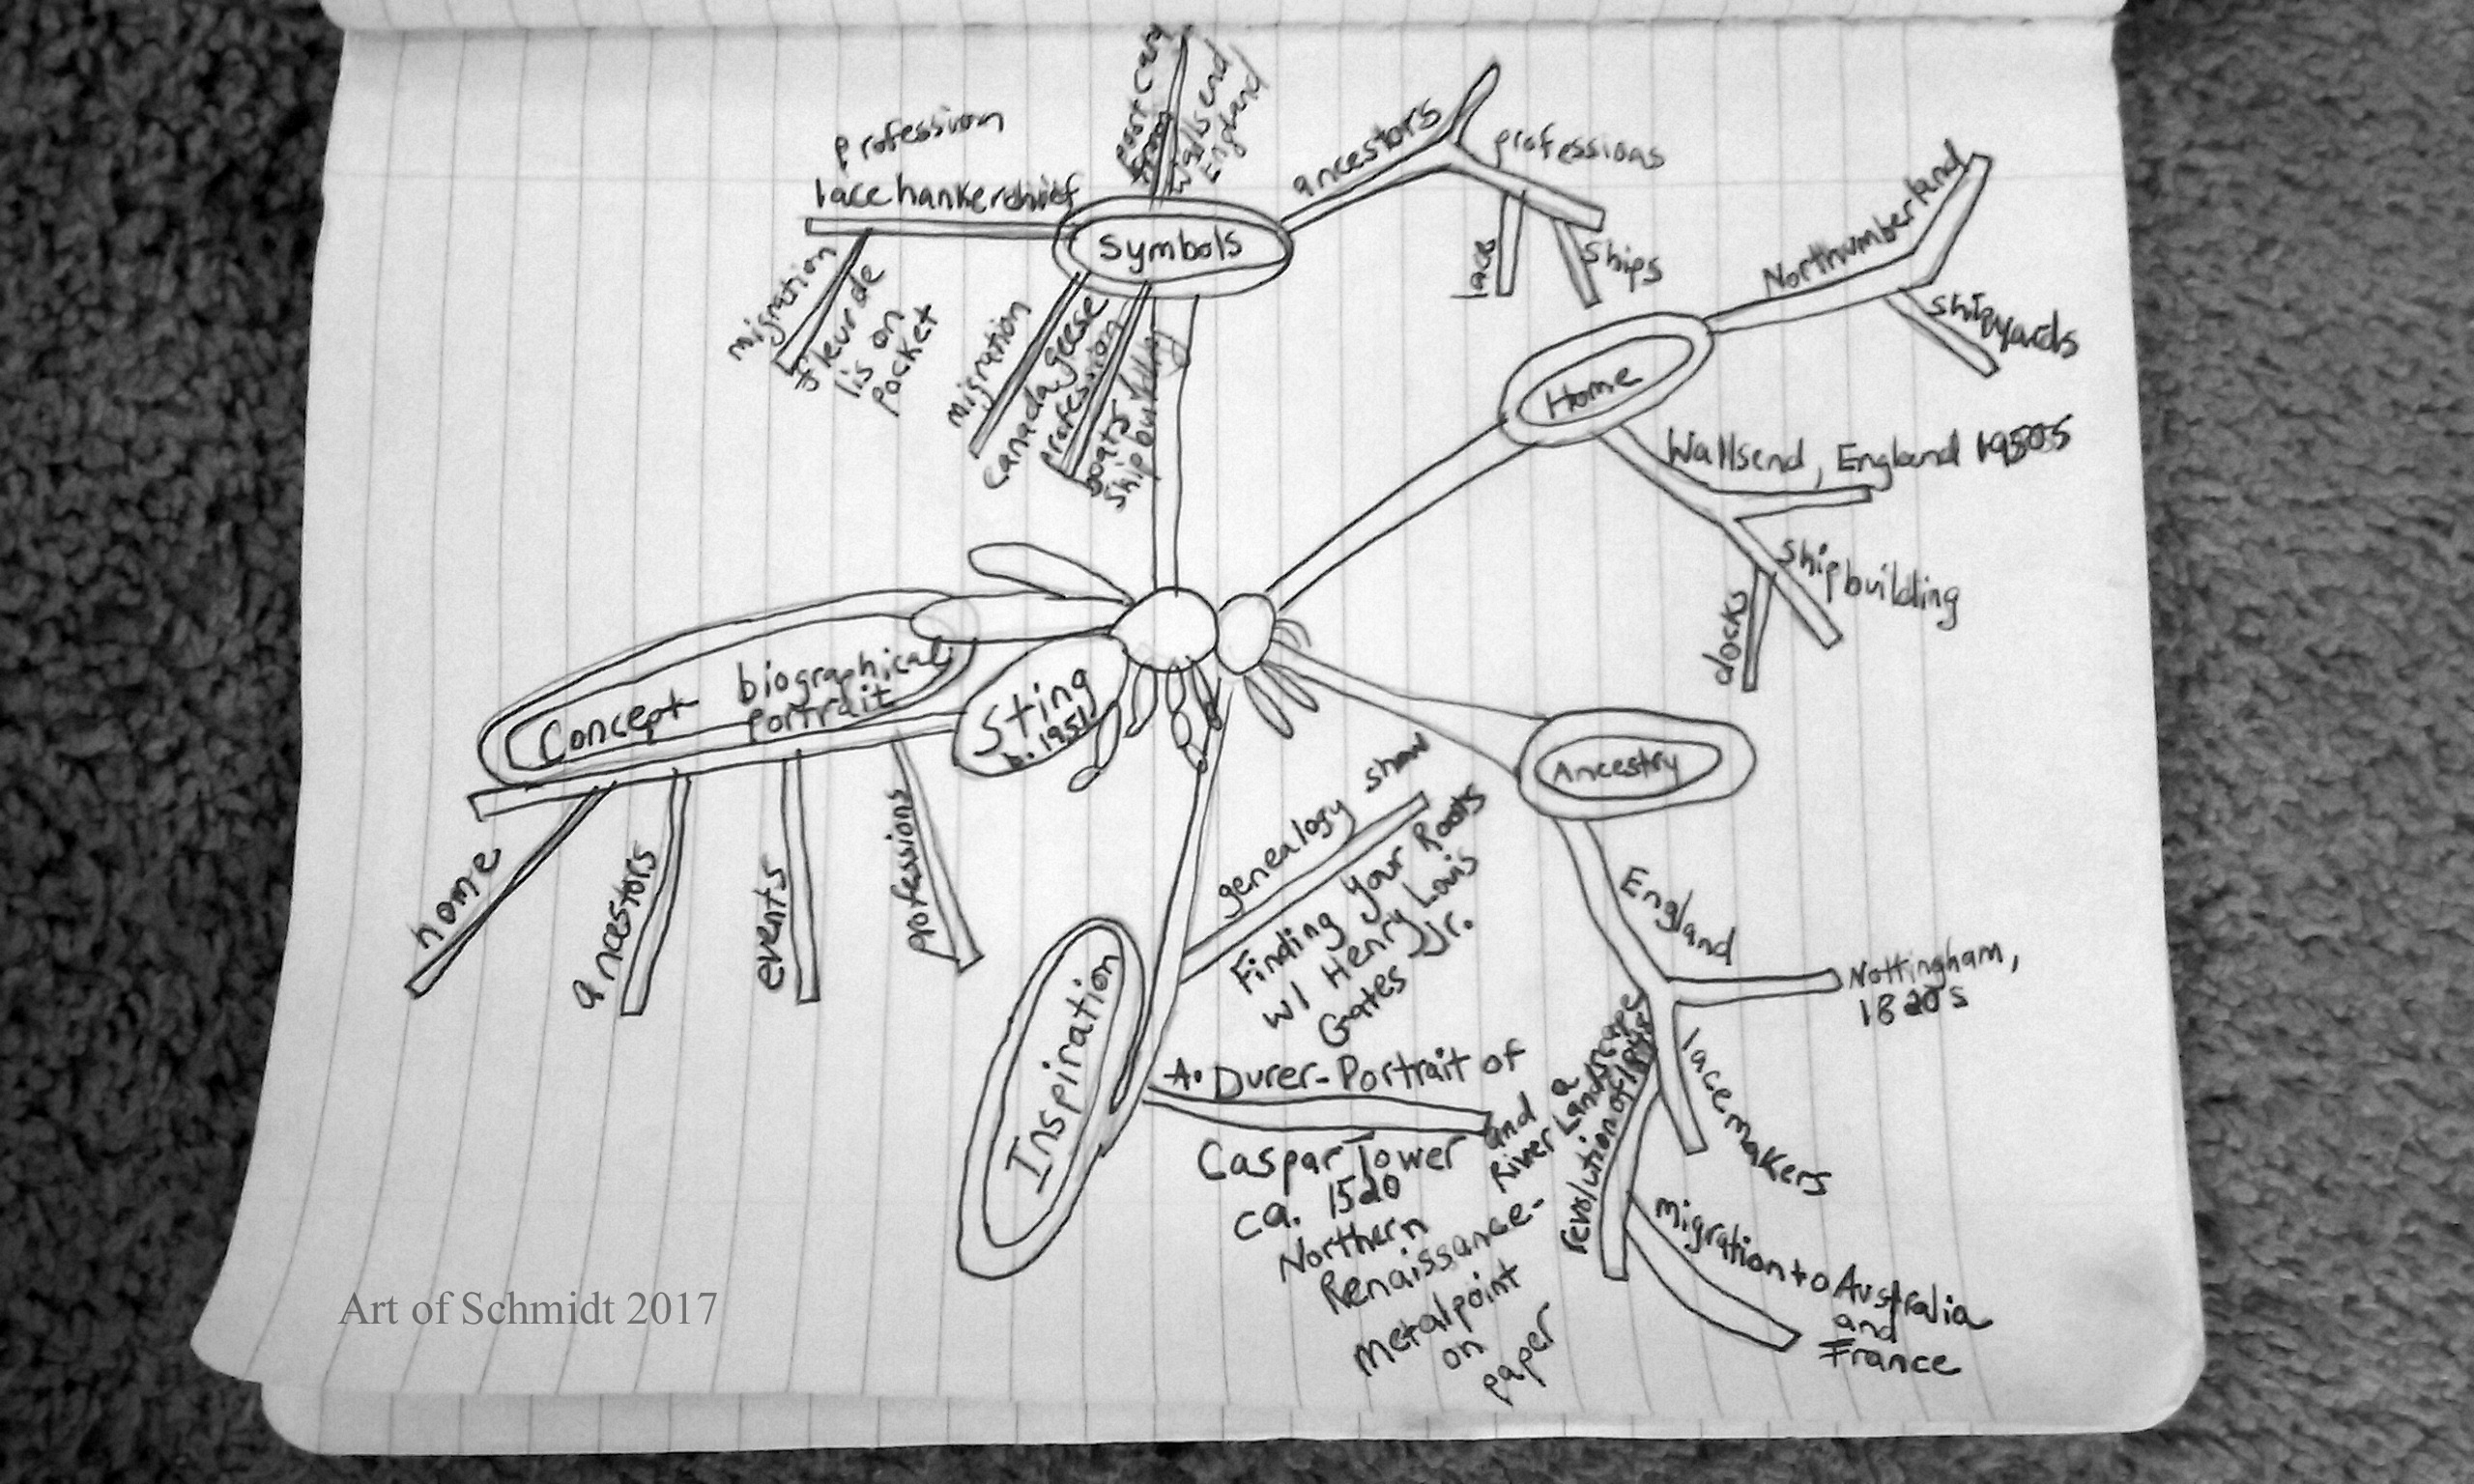 post card
from
Wallsend
England
profession
lace hankerchief
migration
fleur de
lis on
pocket
Symbols
migration
canada geese
profession
boats
shipbuilding
ancestors
professions
lace
ships
Home
Northumberland
shipyards
Wallsend, England 1950s
shipbuilding
docks
Concept biographical
portrait
Sting
b. 1951
home
ancestors
events
professions
Ancestry
England
Nottingham,
1820s
lace makers
revolution of
migration to Australia
and
France
Inspiration
genealogy show
Finding Your Roots
w/ Henry Louis
Gates Jr.
A. Durer-Portrait of
Caspar Tower and
River Landscape
ca. 1520
Northern
Renaissance-
metalpoint
on
paper
Art of Schmidt 2017